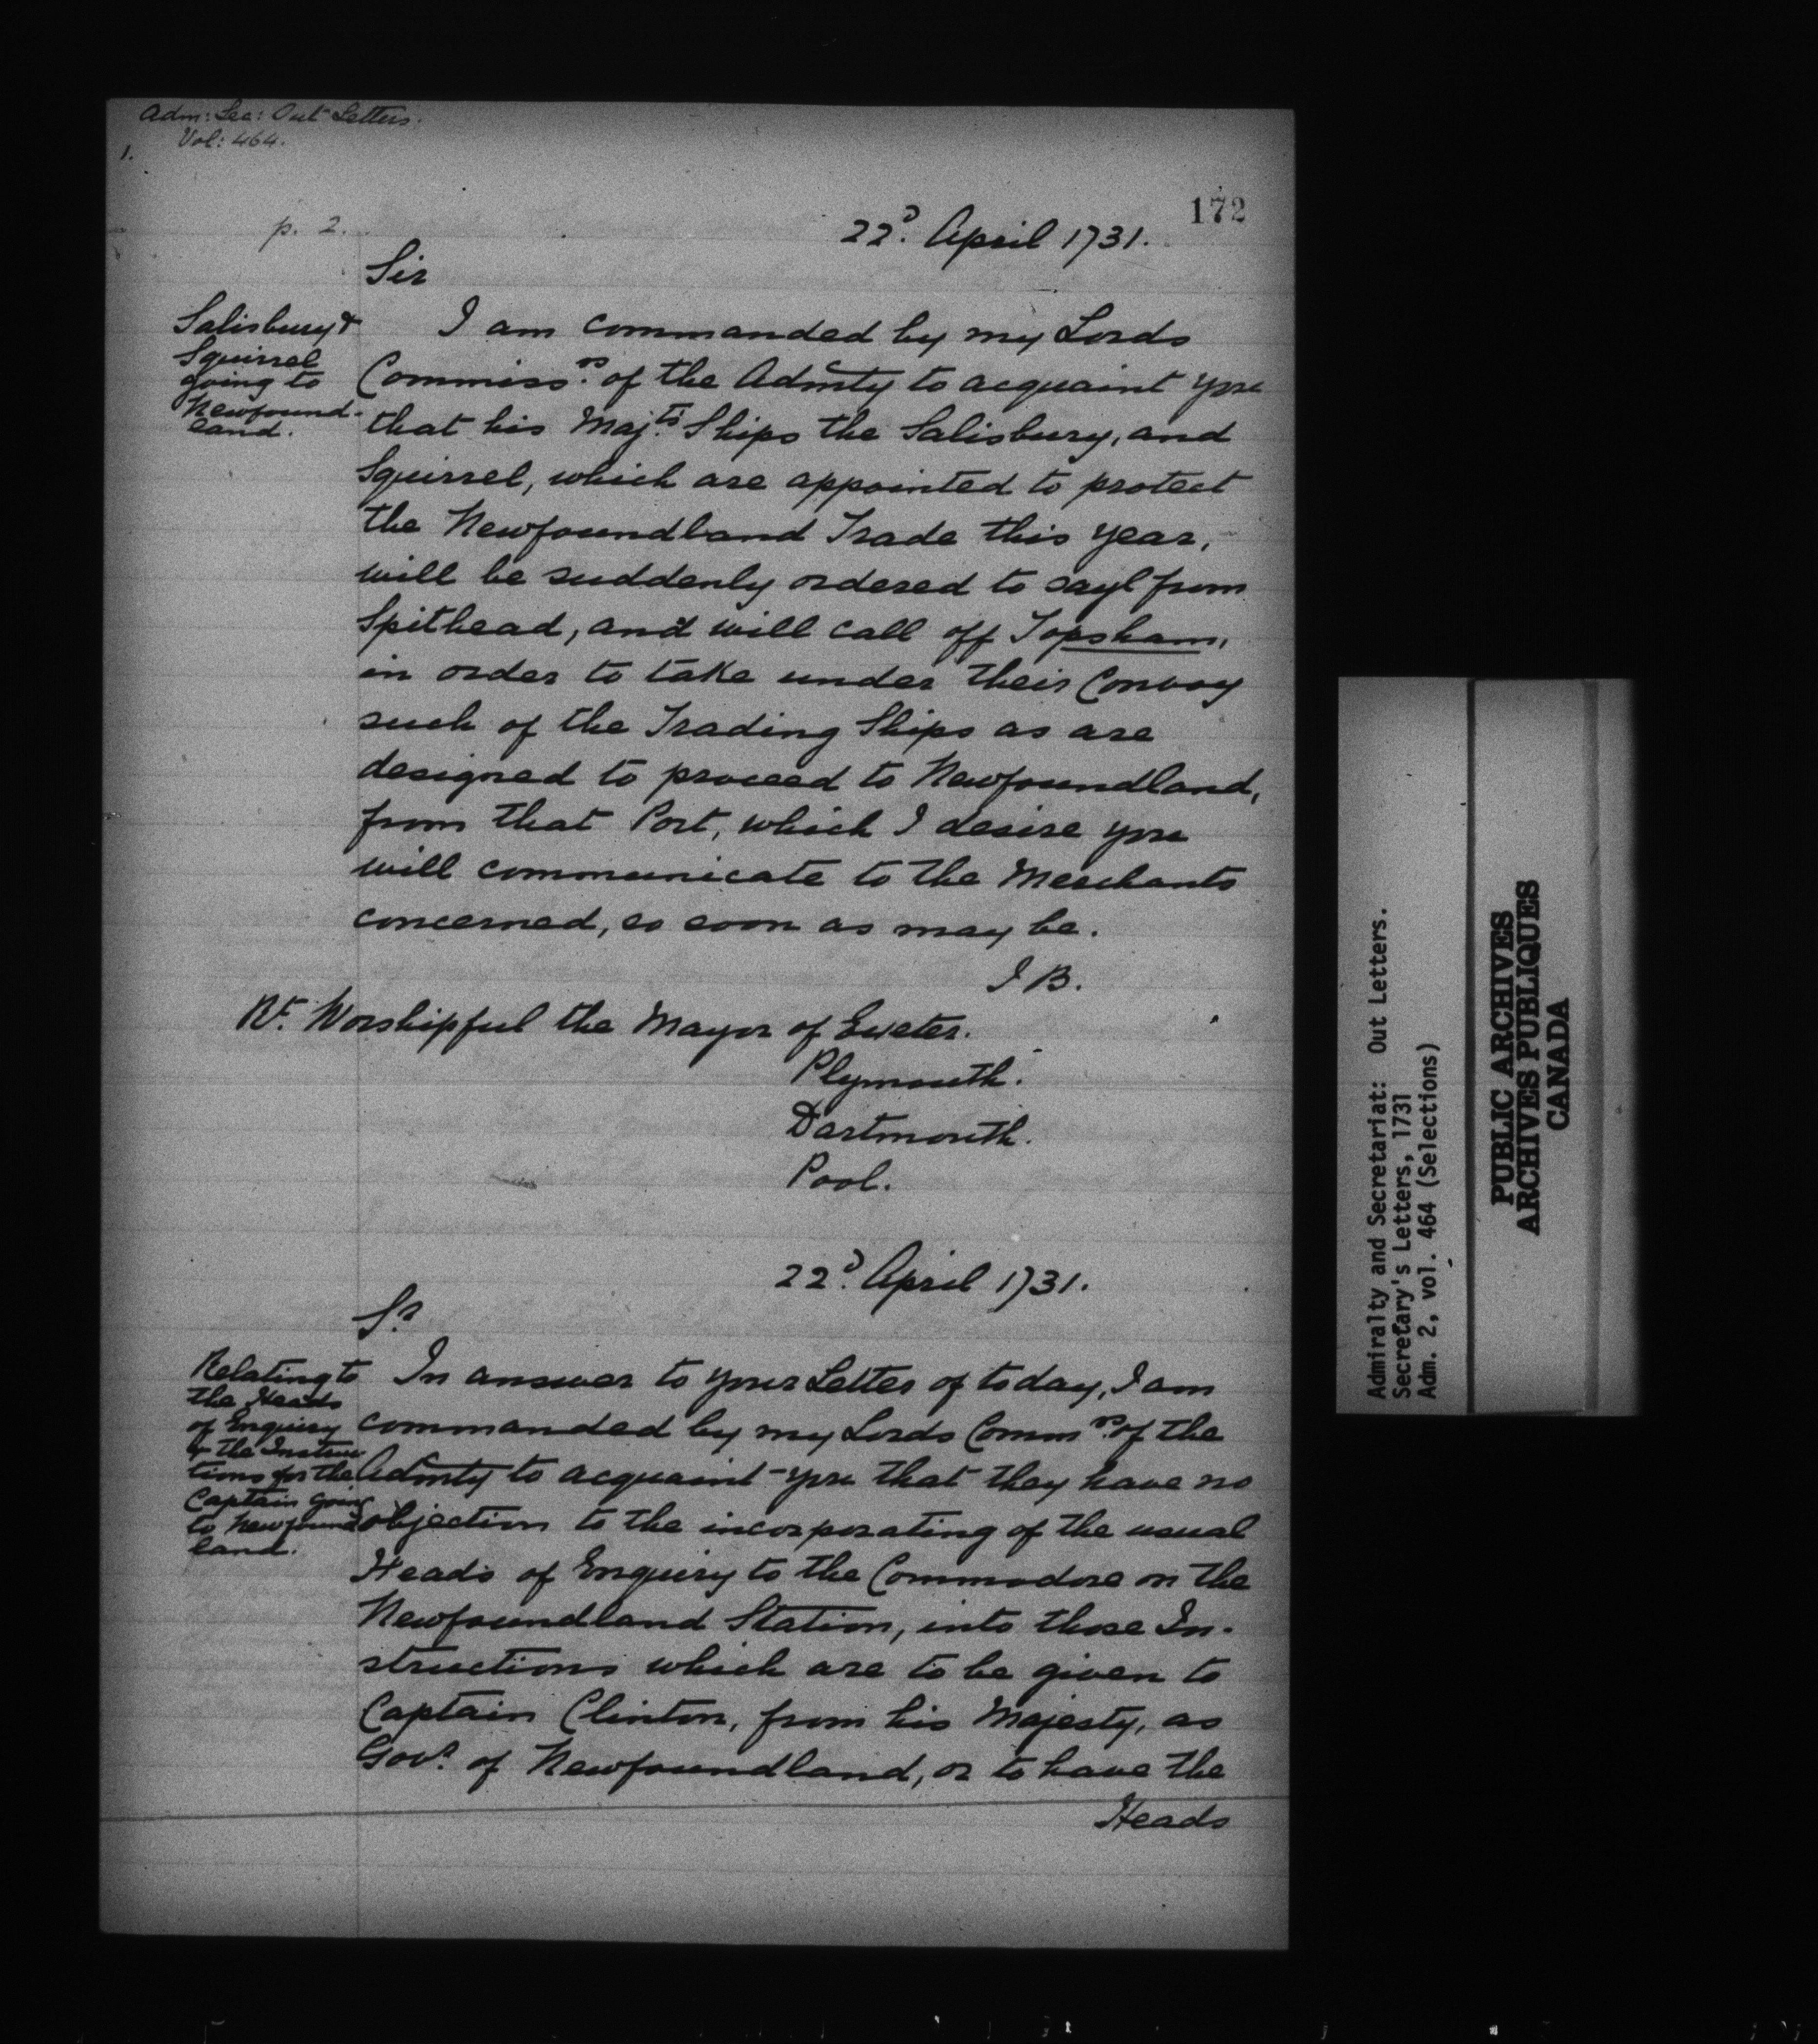 Adm: Sec: Out Letters.
Vol: 464.
1.
172
p. 2.
22d. April 1731.
Sir
Salisbury &
Squirrel
going to
Newfound-
land.
I am commanded by my Lords
Commissrs. of the Admty to acquaint you
that his Majts. Ships the Salisbury, and
Squirrel, which are appointed to protect
the Newfoundland Trade this year,
will be suddenly ordered to sayl from
Spithead, and will call off Topsham,
in order to take under their Convoy
such of the Trading Ships as are
designed to proceed to Newfoundland,
from that Port, which I desire you
will communicate to the Merchants
concerned, so soon as may be.
J B.
Rt. Worshipful the Mayor of Exeter.
Plymouth.
Dartmouth.
Pool.
22d. April 1731.
Sr.
Relating to
the Heads
of Enquiry
& the Instruc
tions for the
Captain going
to Newfound
land.
In answer to your Letter of today, I am
commanded by my Lords Commrs. of the
Admty to acquaint you that they have no
objection to the incorporating of the usual
Heads of Enquiry to the Commodore on the
Newfoundland Station, into those In-
structions which are to be given to
Captain Clinton, from his Majesty, as
Govr. of Newfoundland, or to have the
Heads
Admiralty and Secretariat: Out Letters.
Secretary's Letters, 1731
Adm. 2, vol. 464 (Selections)
PUBLIC ARCHIVES
ARCHIVES PUBLIQUES
CANADA